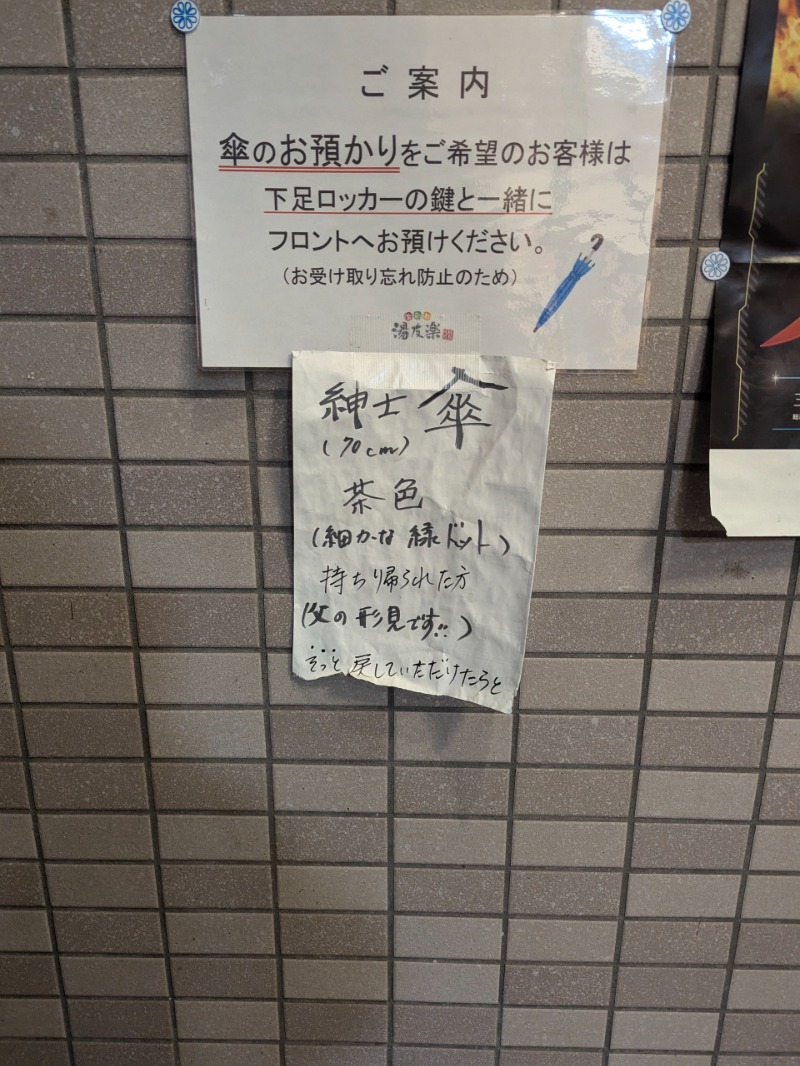 ご案内
傘のお預かりをご希望のお客様は
下足ロッカーの鍵と一緒に
フロントへお預けください。
（お受け取り忘れ防止のため）
湯友楽
紳士 傘
(70cm)
茶色
(細かな 緑ドット)
持ち帰られた方
(父の形見です!!)
そっと戻していただけたらと